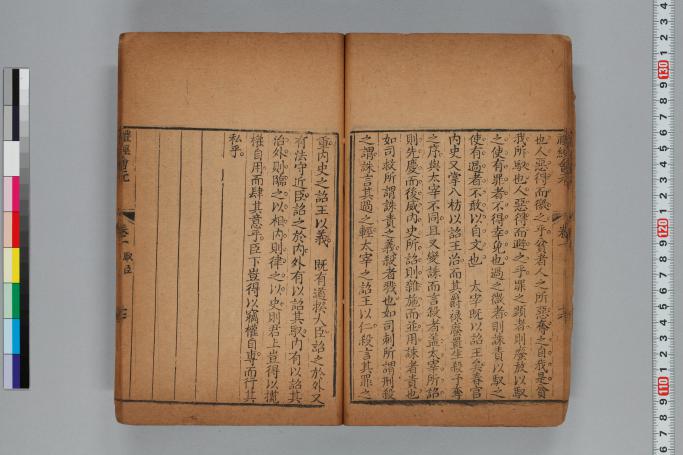 也人惡得而儌之乎貧者人之所惡奪之自我是貧
我所馭也人惡得而避之乎罪之顯者則廢放以馭
之使有罪者不得幸免也過之微者則誅責以馭之
使有過者不敢以自文也 太宰既以詔王矣春官
內史又掌八枋以詔王治而其爵祿廢置生殺予奪
之序與太宰不同且又變誅而言殺者盖太宰所詔
則先慶而後威內史所詔則雜施而並用誅者責也
如司救所謂誅責之義殺者戮也如司刺所謂刑殺
之謂誅言其過之輕太宰之詔王以仁殺言其罪之
重內史之詔王以義 既有道揆大臣詔之於外又
有法守近臣詔之於內外有以詔其馭內有以詔其
治外則臨之以相內則律之以史則君上豈得以撓
權自用而肆其意乎臣下豈得以竊權自專而行其
私乎
禮經會元
卷一
馭臣